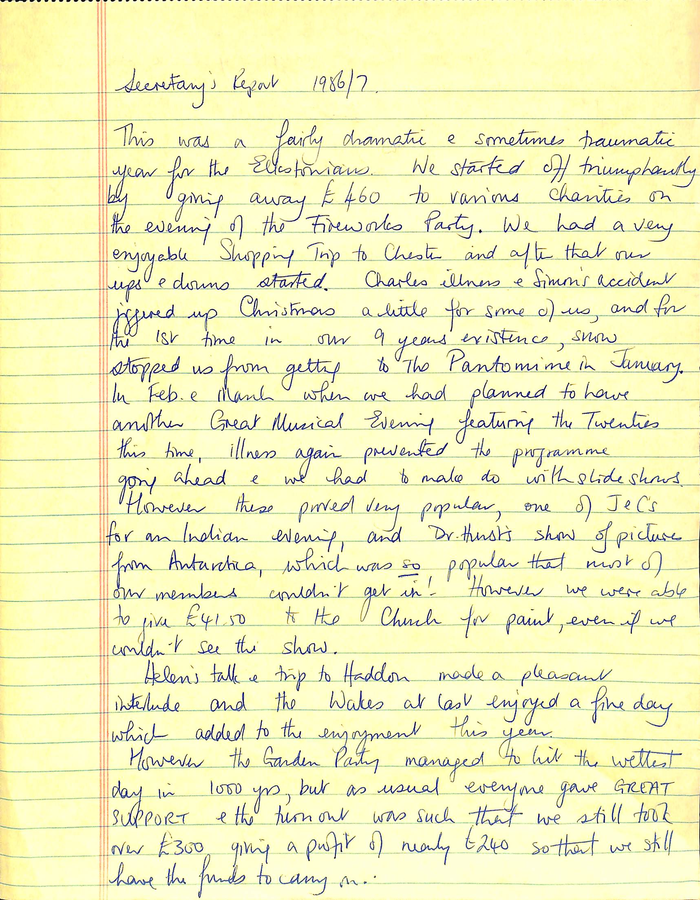 Secretary's Report 1986/7.
This was a fairly dramatic e sometimes traumatic
year for the Elkstonians. We started off triumphantly
by giving away £460 to various charities on
the evening of the Fireworks Party. We had a very
enjoyable Shopping Trip to Chester and after that our
ups e downs started. Charles illness e Simon's accident
jiggered up Christmas a little for some of us, and for
the 1st time in our 9 years existence, snow
stopped us from getting to The Pantomime in January.
In Feb. e March when we had planned to have
another Great Musical Evening featuring the Twenties
this time, illness again prevented the programme
going ahead e we had to make do with slide shows.
However these proved very popular, one of J e C's
for an Indian evening, and Dr. Hurst's show of pictures
from Antarctica, which was so popular that most of
our members couldn't get in! However we were able
to give £41.50 to the Church for paint, even if we
couldn't see the show.
Helen's talk e trip to Haddon made a pleasant
interlude and the Wakes at last enjoyed a fine day
which added to the enjoyment this year.
However the Garden Party managed to hit the wettest
day in 1000 yrs, but as usual everyone gave GREAT
SUPPORT e the turnout was such that we still took
over £300 giving a profit of nearly £240 so that we still
have the funds to carry on..